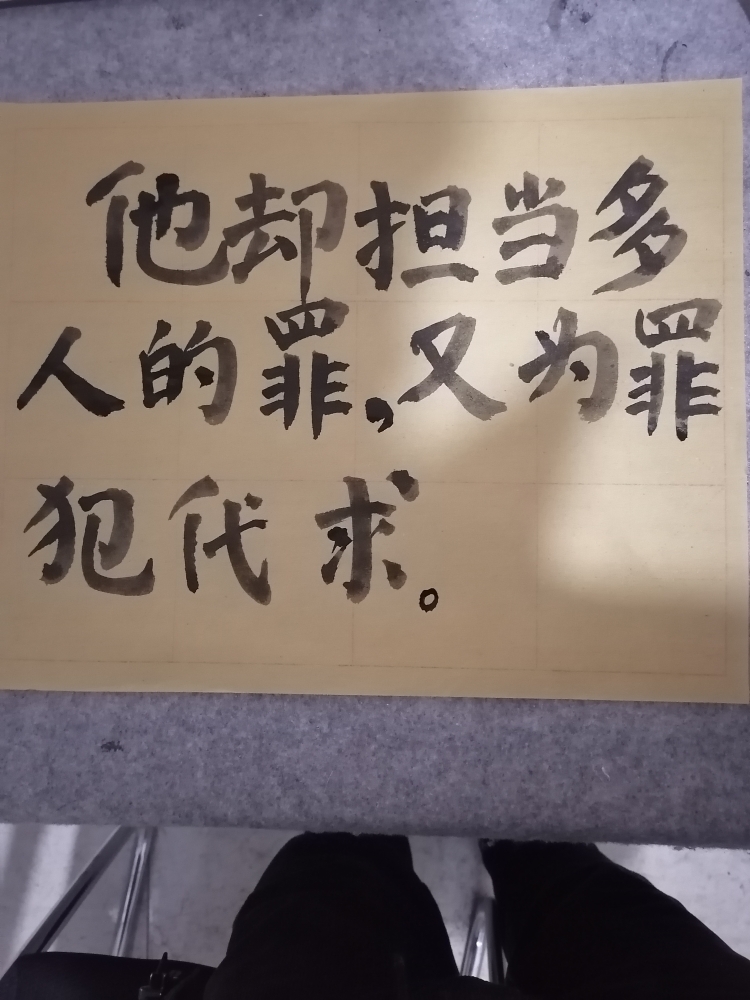 他却担当多
人的罪,又为罪
犯代求。